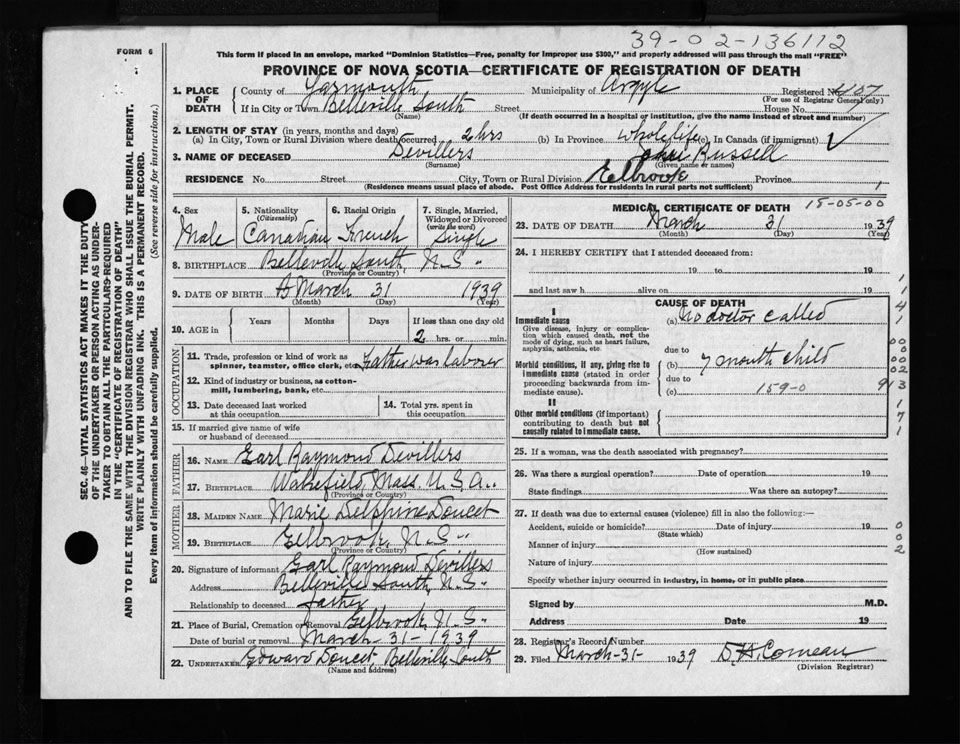 39-02-136112
FORM 6
This form if placed in an envelope, marked "Dominion Statistics—Free, penalty for improper use $300," and properly addressed will pass through the mail "FREE"
PROVINCE OF NOVA SCOTIA—CERTIFICATE OF REGISTRATION OF DEATH
1. PLACE OF DEATH
County of Yarmouth Municipality of Argyle Registered No.
(For use of Registrar General only)
If in City or Town Belleville South Street House No.
(Name) (If death occurred in a hospital or institution, give the name instead of street and number)
2. LENGTH OF STAY (in years, months and days)
(a) In City, Town or Rural Division where death occurred 2 hrs (b) In Province whole life (c) In Canada (if immigrant)
3. NAME OF DECEASED Devillers Russell
(Surname) (Given name or names)
RESIDENCE No. Street City, Town or Rural Division Province
(Residence means usual place of abode. Post Office Address for residents in rural parts not sufficient)
4. Sex
Male
5. Nationality
(Citizenship)
Canadian
6. Racial Origin
French
7. Single, Married, Widowed or Divorced
(write the word)
Single
8. BIRTHPLACE Belleville South, N.S.
(Province or Country)
9. DATE OF BIRTH March 31 1939
(Month) (Day) (Year)
10. AGE in
Years Months Days If less than one day old
2 hrs. or min.
OCCUPATION
11. Trade, profession or kind of work as spinner, teamster, office clerk, etc. Father was laborer
12. Kind of industry or business, as cotton-mill, lumbering, bank, etc.
13. Date deceased last worked at this occupation
14. Total yrs. spent in this occupation
15. If married give name of wife or husband of deceased
FATHER
16. NAME Earl Raymond Devillers
17. BIRTHPLACE Wakefield, Mass. U.S.A.
(Province or Country)
MOTHER
18. MAIDEN NAME Marie Delphine Doucet
19. BIRTHPLACE Eelbrook, N.S.
(Province or Country)
20. Signature of informant Earl Raymond Devillers
Address Belleville South, N.S.
Relationship to deceased Father
21. Place of Burial, Cremation or Removal Eelbrook, N.S.
Date of burial or removal March-31-1939
22. UNDERTAKER Edward Doucet, Belleville South
(Name and address)
MEDICAL CERTIFICATE OF DEATH 15-05-00
23. DATE OF DEATH March 31 1939
(Month) (Day) (Year)
24. I HEREBY CERTIFY that I attended deceased from:
19 to 19
and last saw h alive on 19
CAUSE OF DEATH
I
Immediate cause
Give disease, injury or complication which caused death, not the mode of dying, such as heart failure, asphyxia, asthenia, etc.
(a) No doctor called
due to
Morbid conditions, if any, giving rise to immediate cause (stated in order proceeding backwards from immediate cause).
(b) 7 month child
due to
(c) 159-0
II
Other morbid conditions (if important) contributing to death but not causally related to immediate cause.
25. If a woman, was the death associated with pregnancy?
26. Was there a surgical operation? Date of operation 19
State findings Was there an autopsy?
27. If death was due to external causes (violence) fill in also the following:—
Accident, suicide or homicide? Date of injury 19
(State which)
Manner of injury
(How sustained)
Nature of injury
Specify whether injury occurred in industry, in home, or in public place
Signed by M.D.
Address Date 19
28. Registrar's Record Number
29. Filed March-31- 1939 Comeau
(Division Registrar)
SEC. 46—VITAL STATISTICS ACT MAKES IT THE DUTY
OF THE UNDERTAKER OR PERSON ACTING AS UNDER-
TAKER TO OBTAIN ALL THE PARTICULARS REQUIRED
IN THE "CERTIFICATE OF REGISTRATION OF DEATH"
AND TO FILE THE SAME WITH THE DIVISION REGISTRAR WHO SHALL ISSUE THE BURIAL PERMIT.
WRITE PLAINLY WITH UNFADING INK. THIS IS A PERMANENT RECORD.
Every item of information should be carefully supplied. (See reverse side for instructions.)